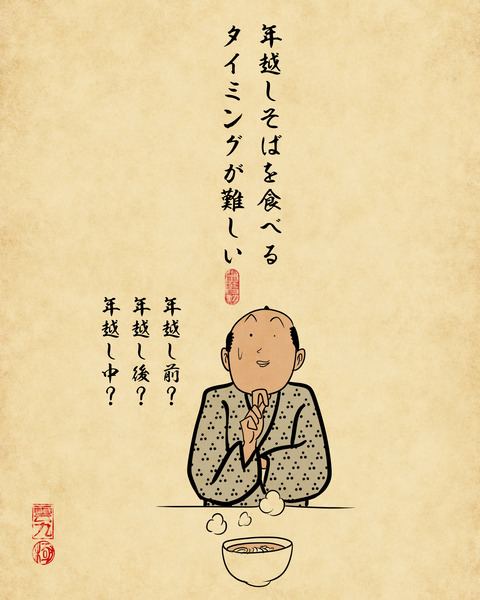 年越しそばを食べる
タイミングが難しい
年越し前?
年越し後?
年越し中?